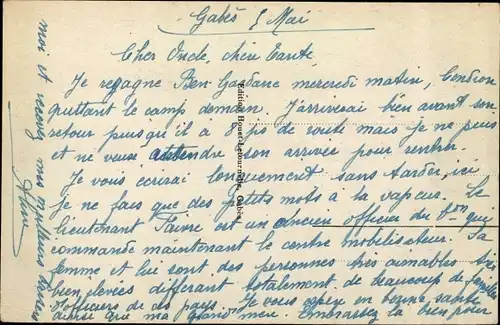 Gabès 8 Mai
Cher Oncle, chère Tante,
Je regagne Ben-Gardane mercredi matin, Gendron
quittant le camp demain. J'arriverai bien avant son
retour puisqu'il a 8 jrs de route mais je ne puis
et ne veux attendre son arrivée pour rentrer.
Je vous écrirai longuement sans tarder, ici,
je ne fais que des petits mots à la vapeur. Le
lieutenant Faivre est un ancien officier du 6ème qui
commande maintenant le centre mobilisateur. Sa
femme et lui sont des personnes très aimables très
bien élevées différant totalement de beaucoup de familles
d'officiers de ces pays. Je vous espère en bonne santé
ainsi que ma grand'mère. Embrassez la bien pour
moi et recevez mes meilleurs baisers
Edition Gabès